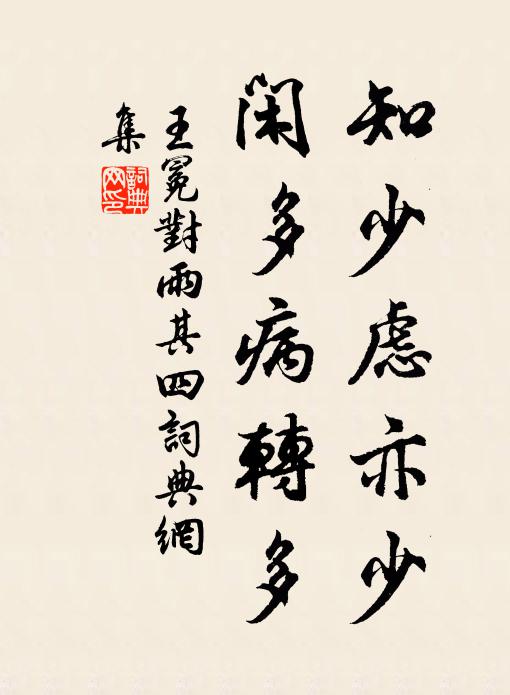 知少慮亦少
閑多病轉多
王冕對雨其四詞典網
集
詞典網印